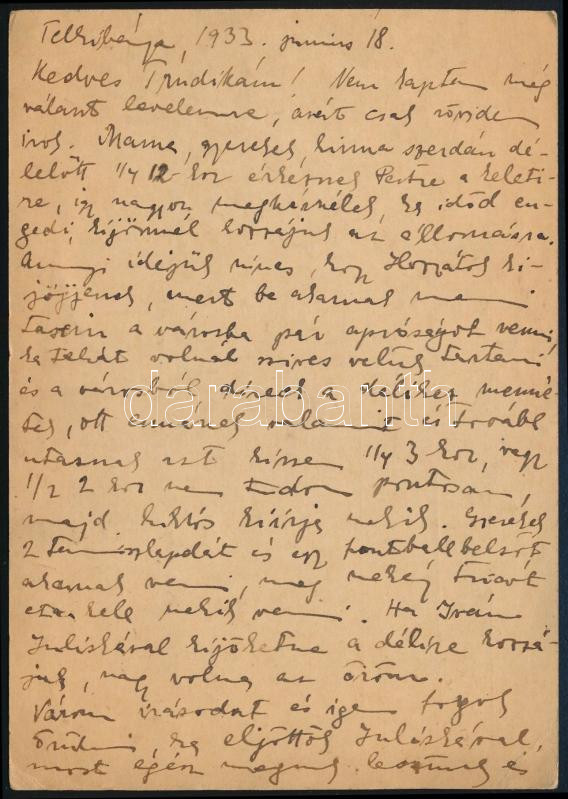 Telkibánya, 1933. junius 18.
Kedves Trudikám! Nem kaptam még
választ levelemre, azért csak röviden
irok. Mama, gyerekek, Emma szerdán dé-
lelőtt 1/4 12-kor érkeznek Pestre a keleti-
re, így nagyon megkérnélek, ha időd en-
gedi, kijönnél hozzájuk az állomásra.
Annyi idejük nincs, hogy Hozzátok ki-
jöjjenek, mert be akarnak menni
taxin a városba pár apróságot venni,
ha tehát volnál szives velük tartani
és a városból direct a délihez menné-
tek, ott ennének valamit és tovább
utaznak azt hiszem 1/4 3 kor, vagy
1/2 2 kor nem tudom pontosan,
majd Miklós kiirja nekik. Gyerekek
2 tenniszlapdát és egy footballbelsőt
akarnak venni, meg nekem
kell nekik venni. Ha Iván
Juliskával kijöhetne a délire hozzá-
juk, nagy volna az öröm.
Várom irásodat és igen fogok
örülni, ha eljöttök Juliskával,
most egész magunk leszünk és
darabanth